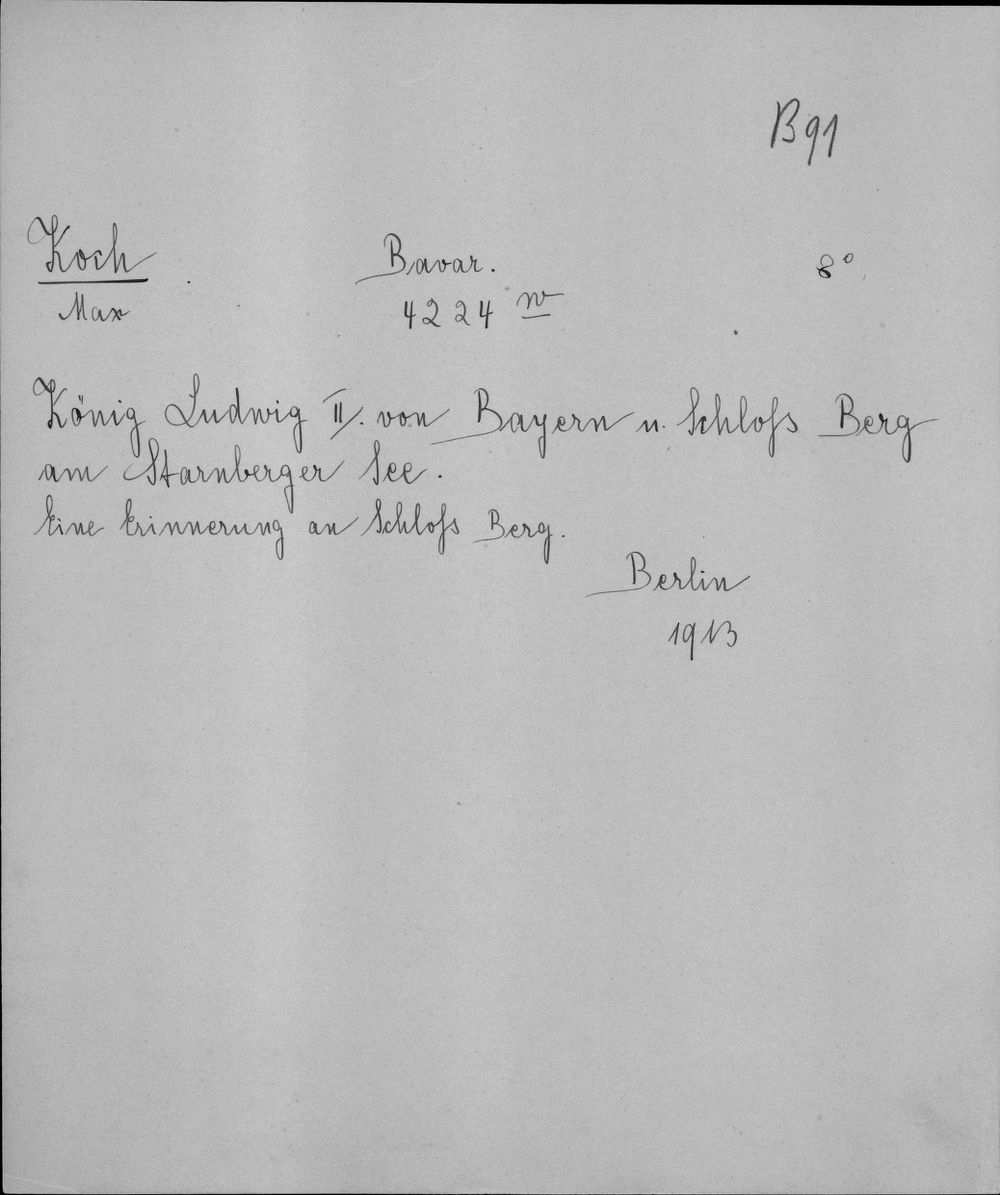 B91
Koch Bavar. 8°
Max 4224 w
König Ludwig II. von Bayern u. Schloſs Berg
am Starnberger See.
Eine Erinnerung an Schloſs Berg.
Berlin
1913